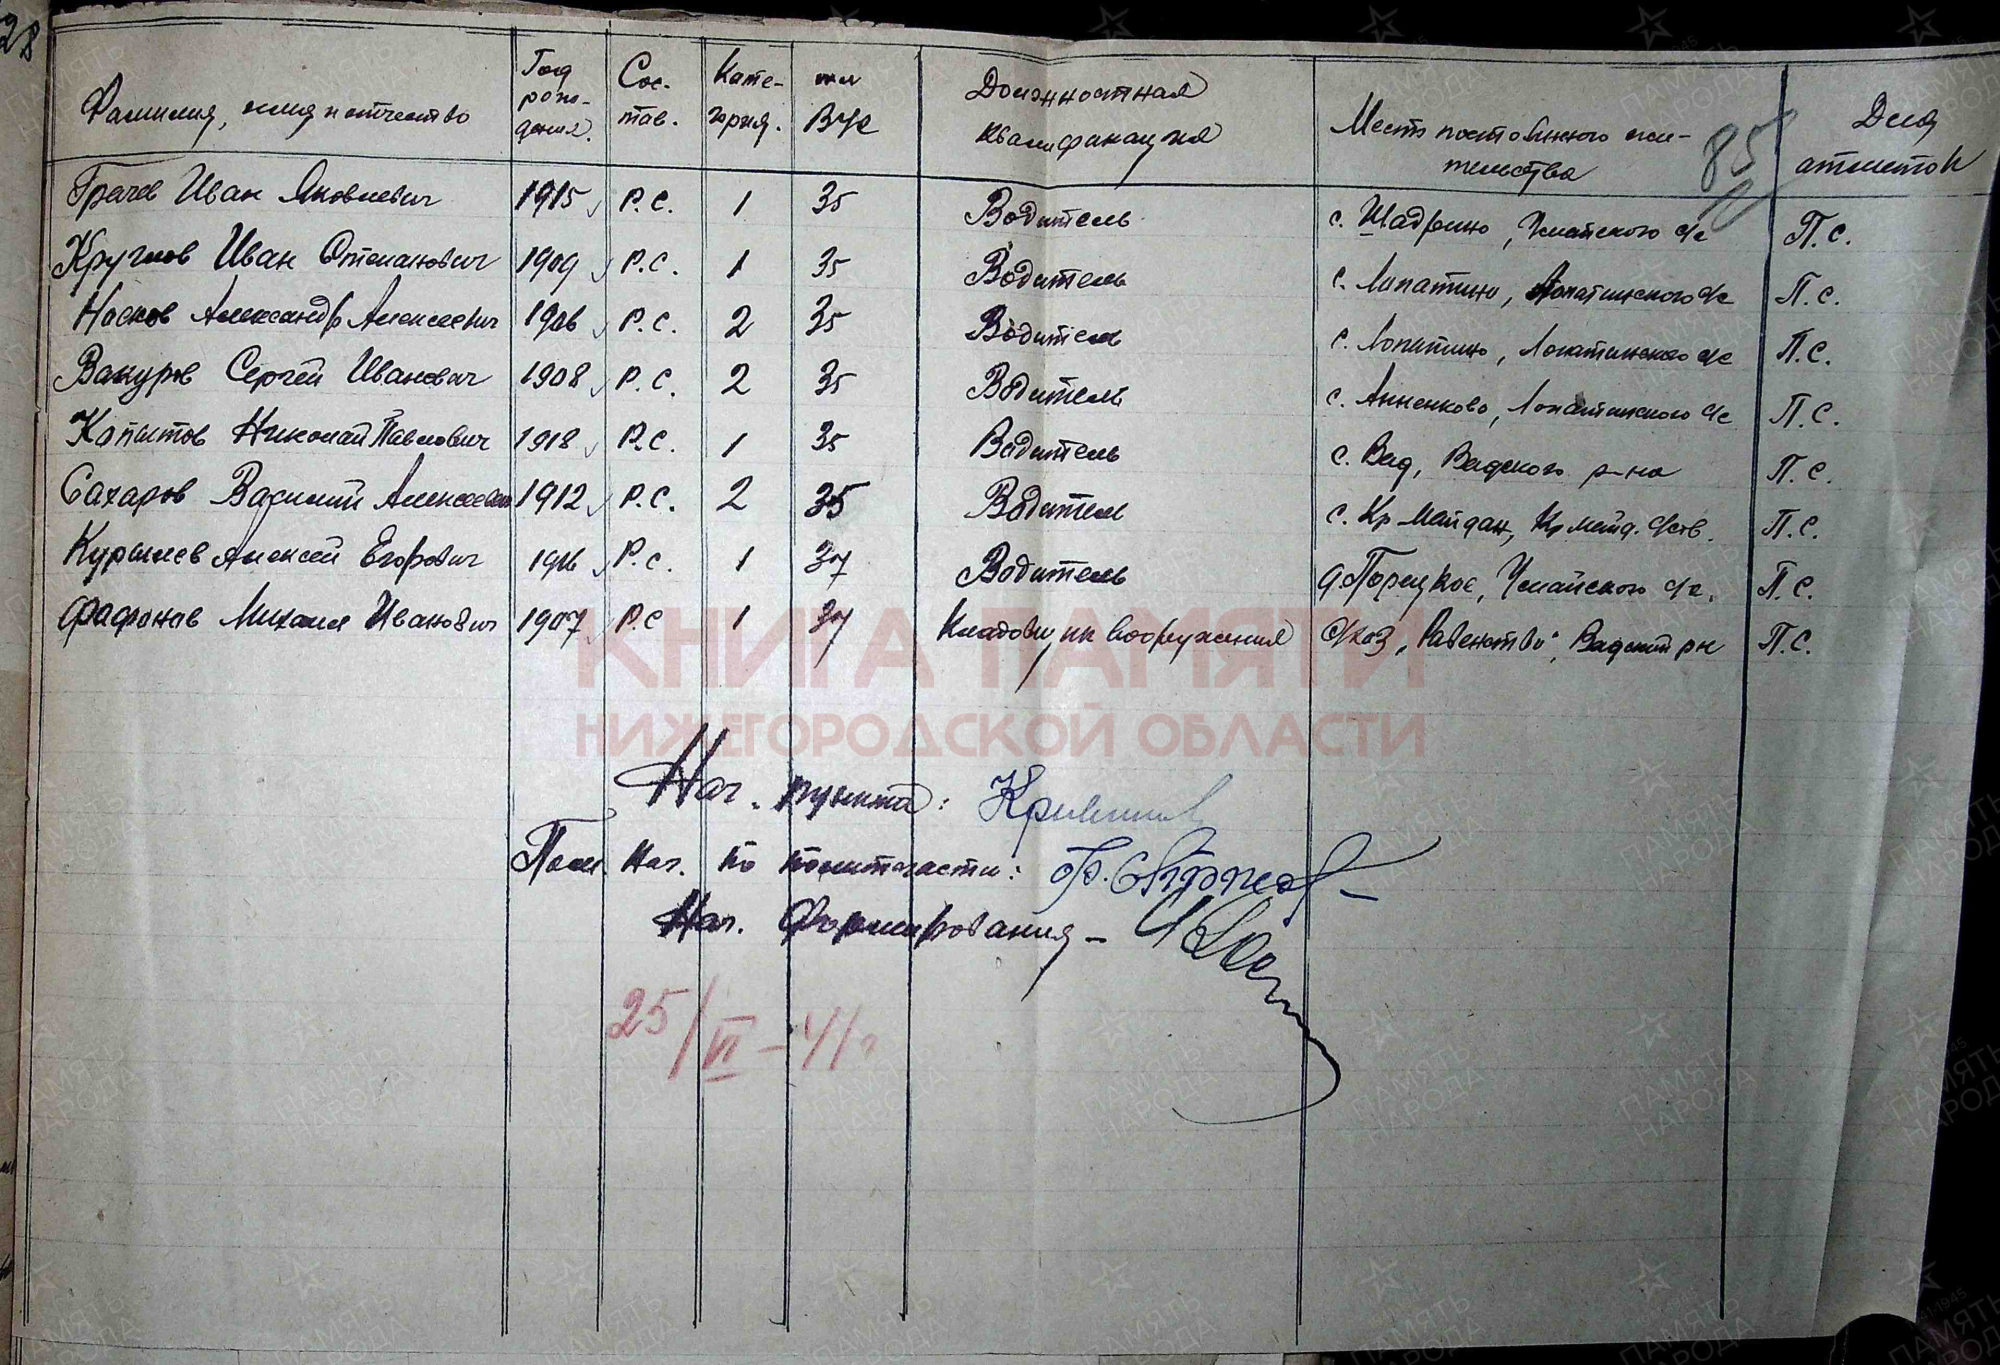 28
Фамилия, имя и отчество Год рождения. Сос-тав. Кате-гория. №№ ВУС Должностная квалификация Место постоянного жи-тельства Для отметок
85
Грачев Иван Яковлевич 1915 Р.С. 1 35 Водитель с. Шадрино, Умайского с/с П.С.
Круглов Иван Степанович 1909 Р.С. 1 35 Водитель с. Лопатино, Лопатинского с/с П.С.
Носков Александр Алексеевич 1906 Р.С. 2 35 Водитель с. Лопатино, Лопатинского с/с П.С.
Вакуров Сергей Иванович 1908 Р.С. 2 35 Водитель с. Анненково, Лопатинского с/с П.С.
Капытов Николай Павлович 1918 Р.С. 1 35 Водитель с. Вад, Вадского р-на П.С.
Сахаров Василий Алексеевич 1912 Р.С. 2 35 Водитель с. Кр-Майдан, Кр майд. с/сов. П.С.
Курылев Алексей Егорович 1916 Р.С. 1 37 Водитель д. Порецкое, Умайского с/с. П.С.
Фафонов Михаил Иванович 1907 Р.С 1 37 Кладовщик вооружения с/хоз „Равенство", Вадский рн П.С.
КНИГА ПАМЯТИ
НИЖЕГОРОДСКОЙ ОБЛАСТИ
Нач. пункта:
Пом. Нач. по политчасти:
Нач. Формирования –
25/VI – 41г
ПАМЯТЬ НАРОДА